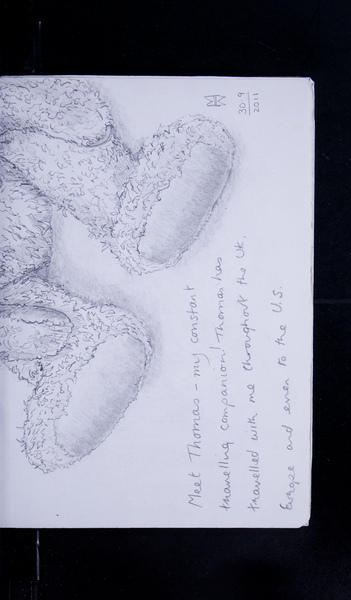 Meet Thomas - my constant
travelling companion! Thomas has
travelled with me throughout the UK,
Europe and even to the U.S.
30.9
2011